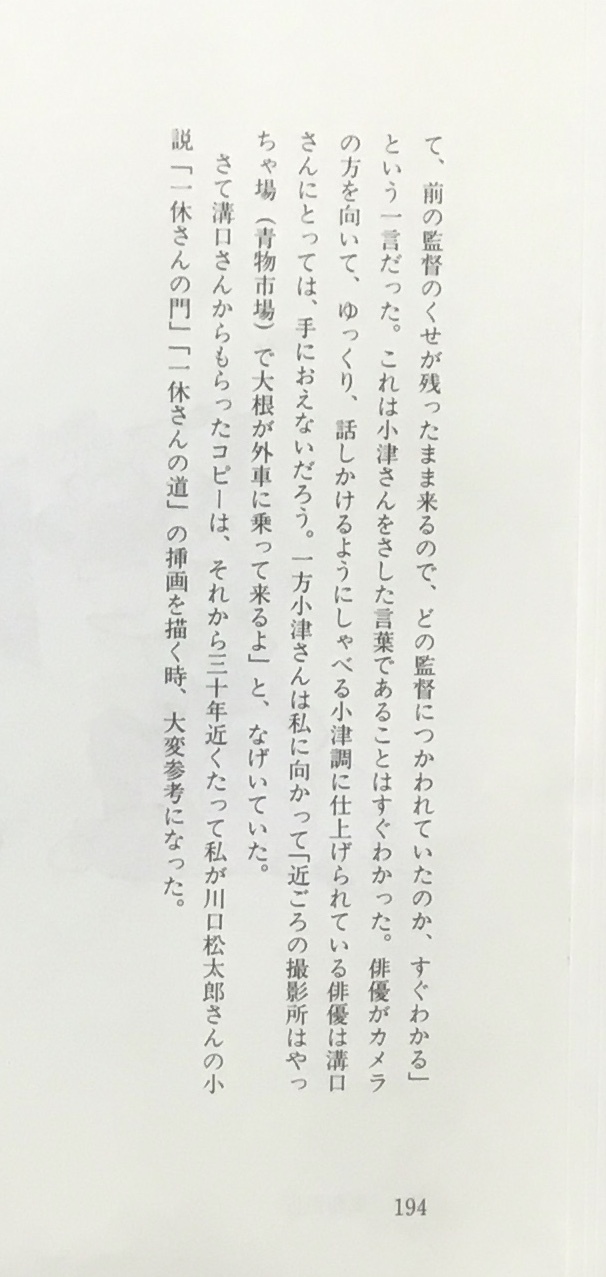 て、前の監督のくせが残ったまま来るので、どの監督につかわれていたのか、すぐわかる」
という一言だった。これは小津さんをさした言葉であることはすぐわかった。俳優がカメラ
の方を向いて、ゆっくり、話しかけるようにしゃべる小津調に仕上げられている俳優は溝口
さんにとっては、手におえないだろう。一方小津さんは私に向かって「近ごろの撮影所はやっ
ちゃ場（青物市場）で大根が外車に乗って来るよ」と、なげいていた。
さて溝口さんからもらったコピーは、それから三十年近くたって私が川口松太郎さんの小
説「一休さんの門」「一休さんの道」の挿画を描く時、大変参考になった。
194